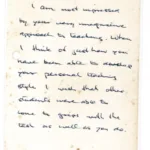 I am most impressed
by your very imaginative
approach to teaching. When
I think of just how you
have been able to develop
your personal teaching
style I wish that other
students were able to
come to grips with the
task as well as you do.